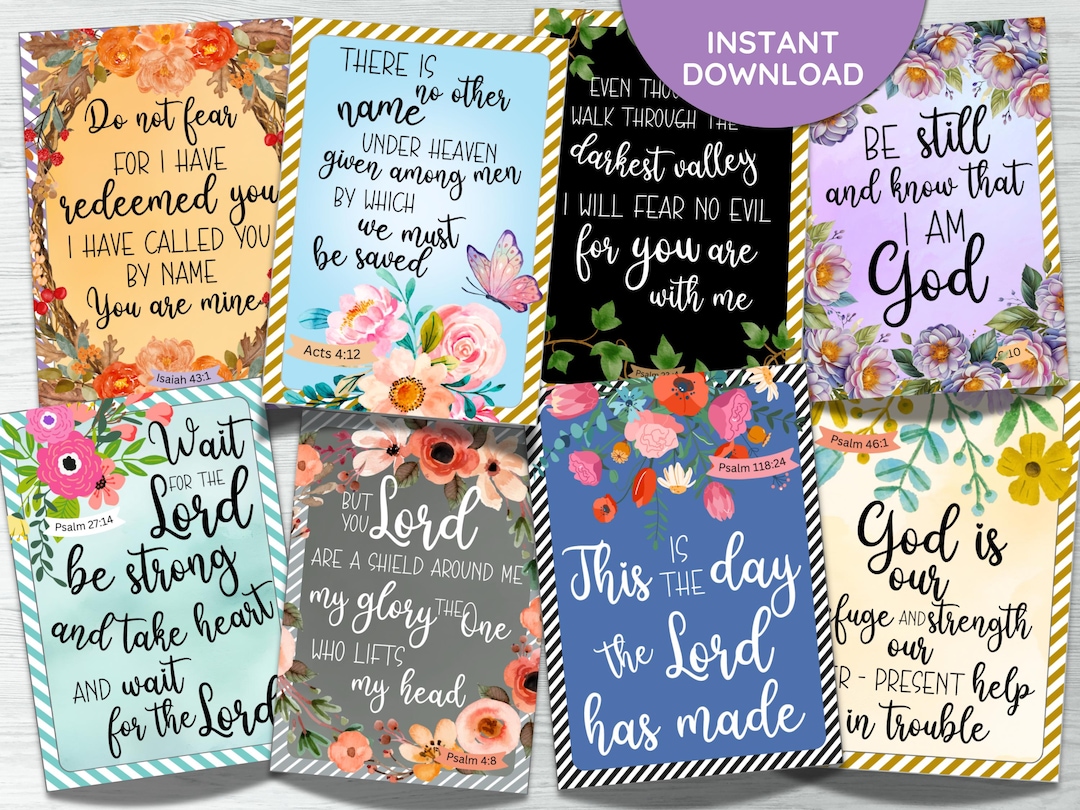 INSTANT
DOWNLOAD
Do not fear
FOR I HAVE
redeemed you
I HAVE CALLED YOU
BY NAME
You are mine
Isaiah 43:1
THERE IS
no other
name
UNDER HEAVEN
given among men
BY WHICH
we must
be saved
Acts 4:12
EVEN
WALK THROUGH THE
darkest valley
I WILL FEAR NO EVIL
for you are
with me
BE still
and know that
I AM
God
10
Wait
FOR THE
Lord
Psalm 27:14
be strong
and take heart
AND wait
for the Lord
BUT
YOU Lord
ARE A SHIELD AROUND ME
my glory THE One
WHO LIFTS
my head
Psalm 4:8
Psalm 118:24
This IS THE day
the Lord
has made
Psalm 46:1
God is
our
AND strength
our
PRESENT help
in trouble